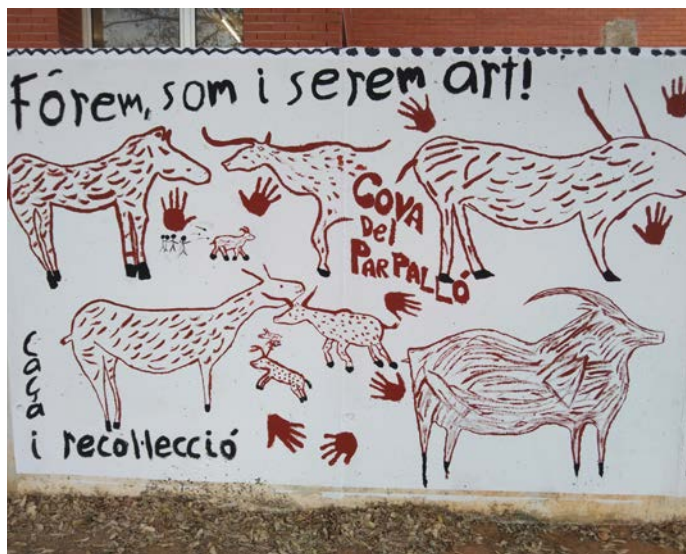 Fórem, som i serem art!
COVA
Del
PARPALLÓ
caça
i recol·lecció